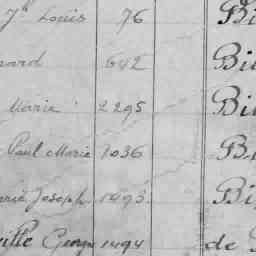 Jh Louis 76 Bi
nard 642 Bi
Marie 2295 Bi
Paul Marie 1036 B
arie Joseph 1493 Bi
ville George 1494 de